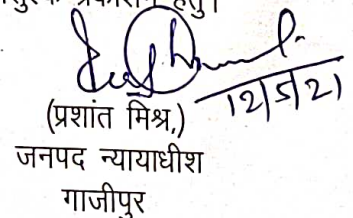 प्रकाशन हेतु।
12/5/21
(प्रशांत मिश्र,)
जनपद न्यायाधीश
गाजीपुर